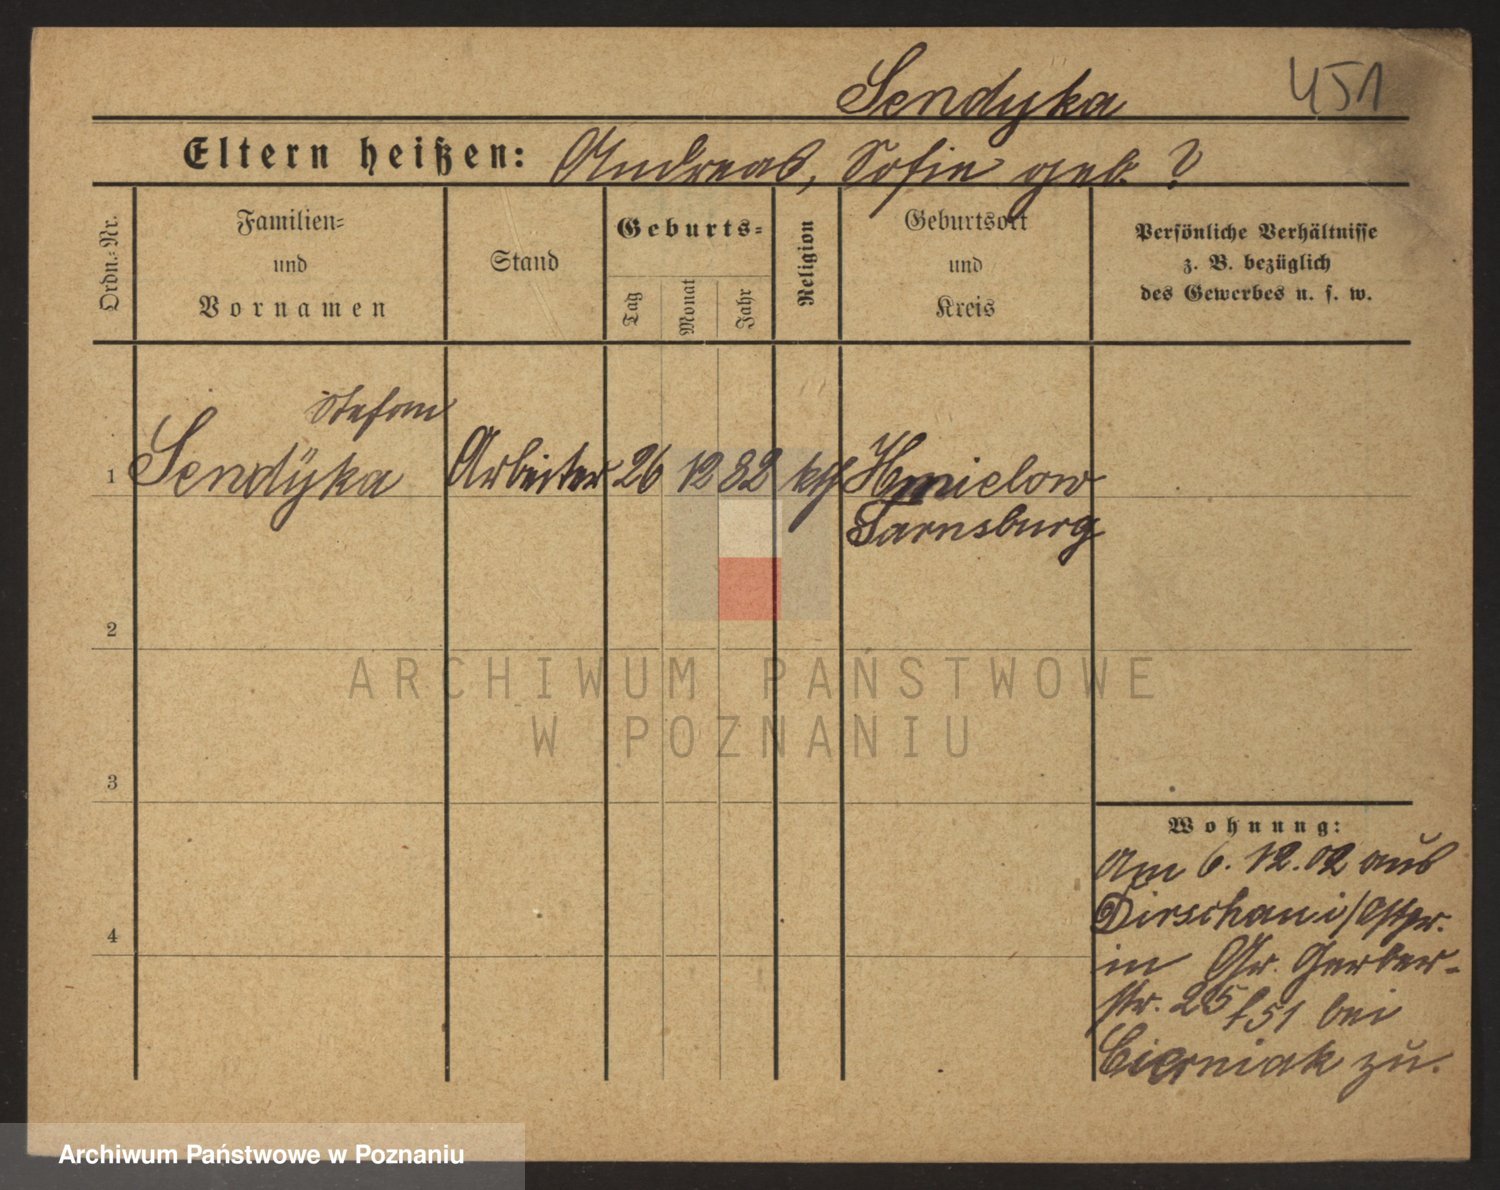 Sendyka 451
Eltern heißen: Andreas, Sofie geb. ?
Ordn.-Nr.
Familien- und Vornamen
Stand
Geburts-
Tag
Monat
Jahr
Religion
Geburtsort und Kreis
Persönliche Verhältnisse
z. B. bezüglich
des Gewerbes u. s. w.
Stefan
1 Sendÿka Arbeiter 26 12 82 kth Hmielow
Tarnsburg
2
3
4
Wohnung:
Am 6. 12. 02 aus
Dirschau i/Ostpr.
in Gr. Gerber-
str. 25 f51 bei
Cierniak zu.
ARCHIWUM PAŃSTWOWE
W POZNANIU
Archiwum Państwowe w Poznaniu